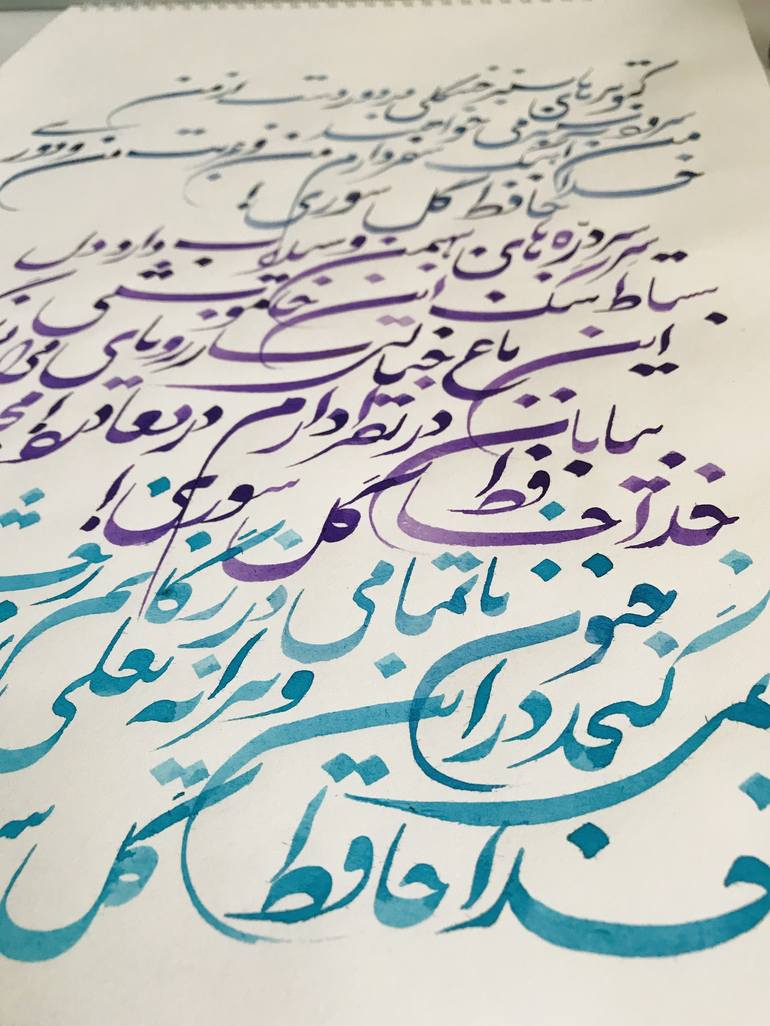 کبوترهای سبز جنگلی در دوردست از من
سرود سبز می خواهند
من آهنگ سفر دارم من و غربت من و دوری
خداحافظ گل سوری!
سر سردره های بهمن و سیلاب دارد دل
بساط تنگ این خاموشی
این باغ خیالی ساز رویای
بیابان در نظر دارم دریغا درد
خداحافظ گل سوری!
جنون ناتمامی در رگانم
نمی گنجد در این ویرانه
خداحافظ گل